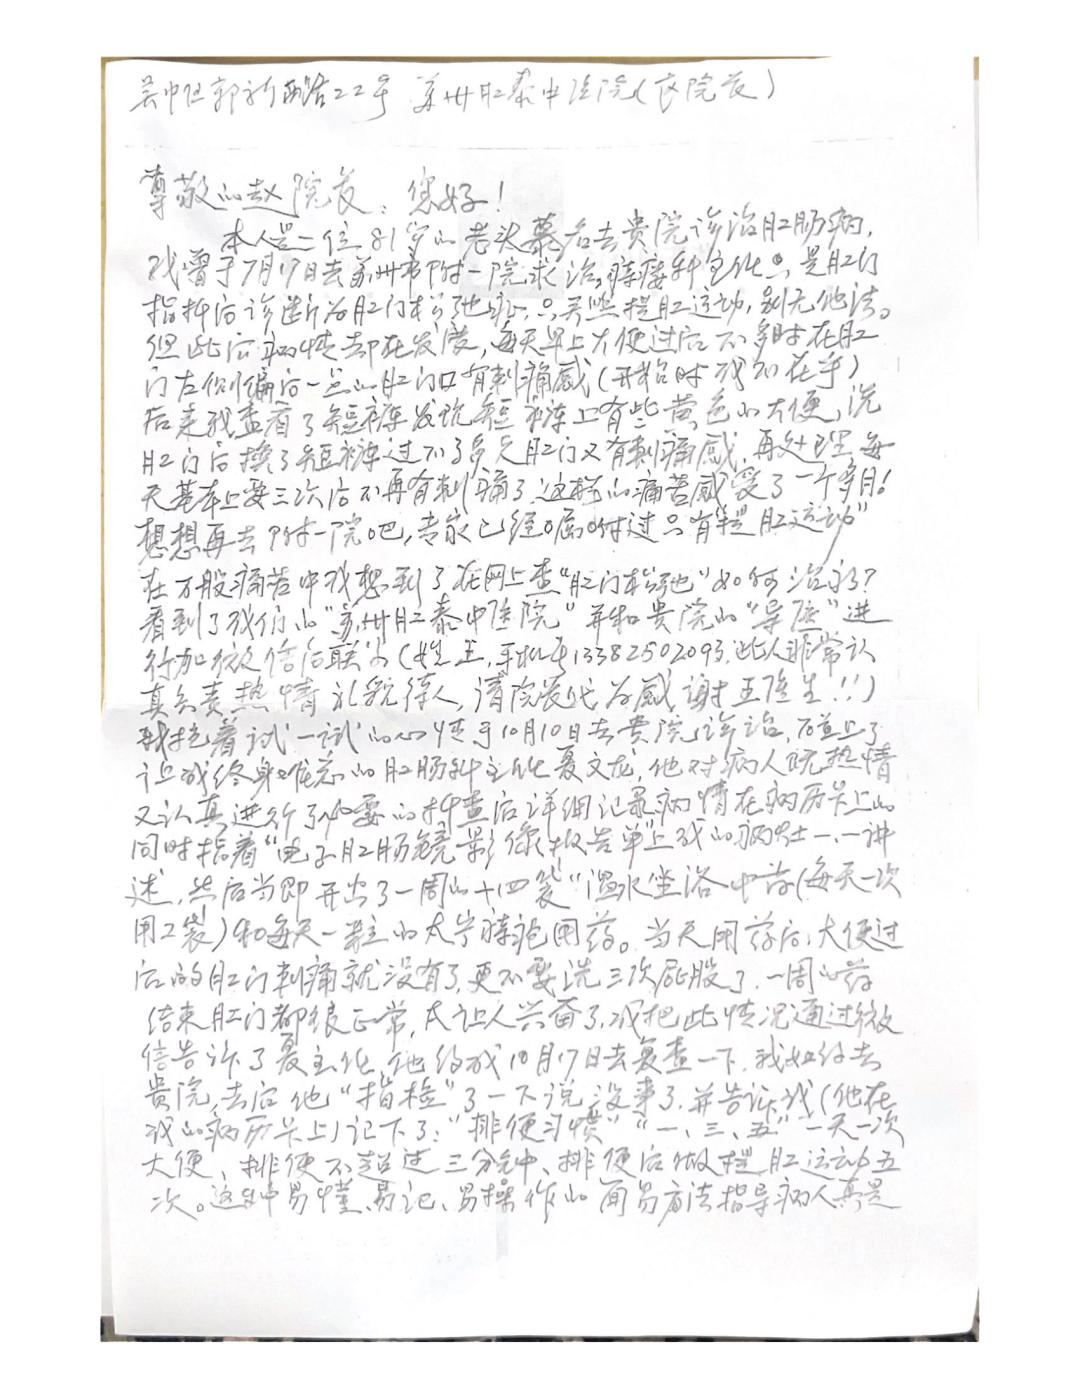 吴中区郭新西路22号 苏州肛泰中医院(赵院长)
尊敬的赵院长:您好!
本人是一位81岁的老头慕名去贵院诊治肛肠病,
我曾于7月17日去苏州市附一院求治,痔瘘科主任只是肛门
指抻后诊断为肛门松弛症,只关照提肛运动,别无他法。
但此后病情却在发展,每天早上大便过后不多时在肛
门左侧偏后一点的肛门口有刺痛感(开始时我不在乎)
后来我查看了短裤发现短裤上有些黄色的大便,洗
肛门后换了短裤过不了多久肛门又有刺痛感,再处理,每
天基本上要三次后不再有刺痛了,这样的痛苦感受了一个多月!
想想再去附一院吧,专家已经嘱咐过只有“提肛运动”
在万般痛苦中我想到了在网上查“肛门松弛”如何治疗?
看到了我们的“苏州肛泰中医院”并和贵院的“导医”进
行加微信后联系(姓王,手机号13382502093,此人非常认
真负责热情礼貌待人,请院长代为感谢王医生!!!)
我抱着试一试的心情于10月10日去贵院诊治,碰上了
让我终身难忘的肛肠科主任夏文龙,他对病人既热情
又认真进行了必要的抻查后详细记录病情在病历卡上的
同时指着“电子肛肠镜影像报告单”上我的病灶一一讲
述,然后当即开出了一周的十四袋“温水坐浴中药(每天一次
用2袋)和每天一粒的太宁痔疮用药。当天用药后,大便过
后的肛门刺痛就没有了,更不要洗三次屁股了,一周的药
结束肛门都很正常,太让人兴奋了,我把此情况通过微
信告诉了夏主任,他约我10月17日去复查一下,我如约去
贵院,去后他“指检”了一下说没事了,并告诉我(他在
我的病历卡上)记下了:“排便习惯”“一、三、五”一天一次
大便、排便不超过三分钟、排便后做提肛运动五
次。这种易懂、易记、易操作的简易方法指导病人真是